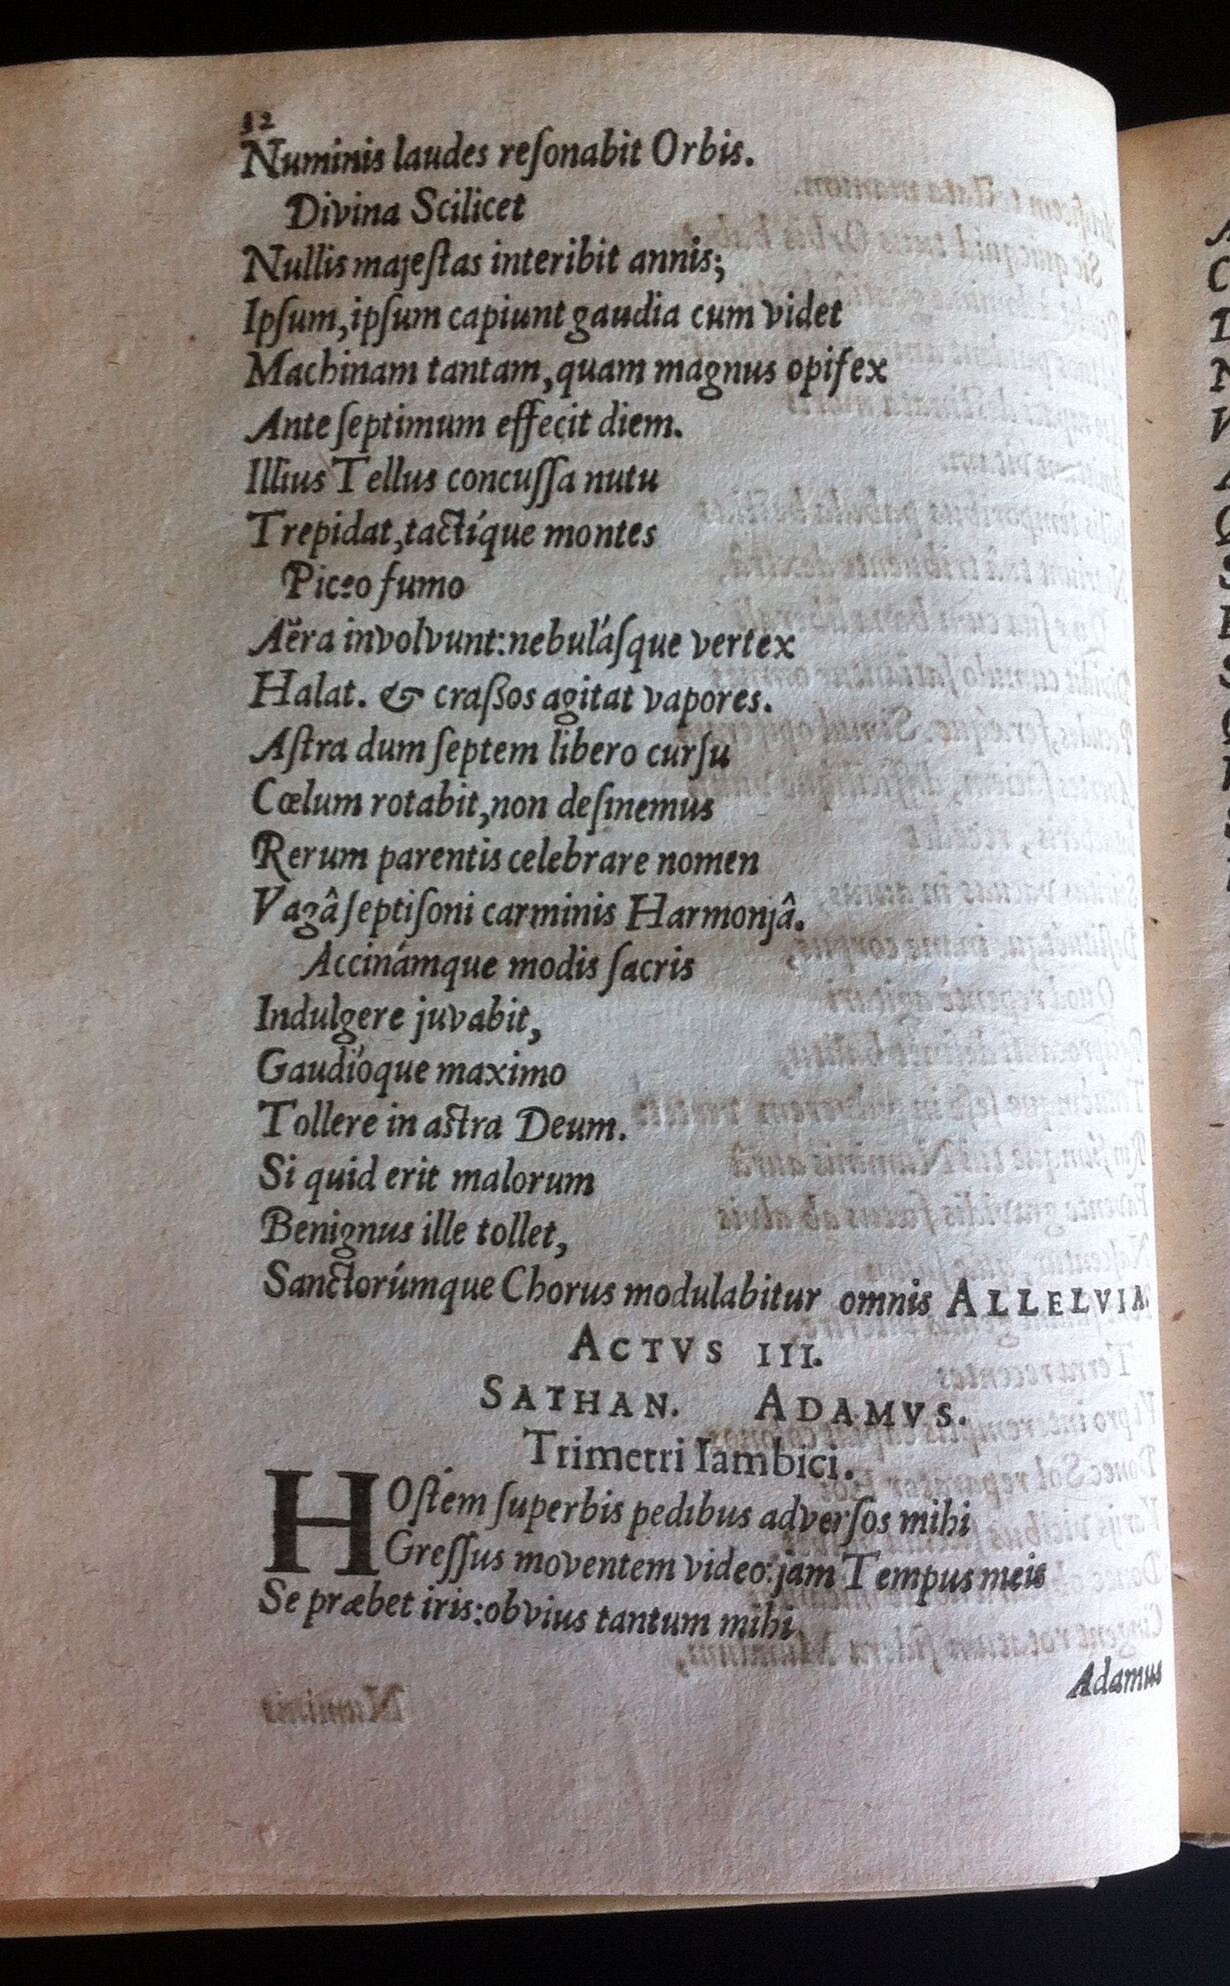 32
Numinis laudes reſonabit Orbis.
Divina Scilicet
Nullis majeſtas interibit annis;
Ipſum, ipſum capiunt gaudia cum videt
Machinam tantam, quam magnus opifex
Ante ſeptimum effecit diem.
Illius Tellus concuſſa nutu
Trepidat, tactíque montes
Piceo fumo
Aëra involvunt: nebuláſque vertex
Halat. & craßos agitat vapores.
Aſtra dum ſeptem libero curſu
Cœlum rotabit, non deſinemus
Rerum parentis celebrare nomen
Vagâ ſeptiſoni carminis Harmonjâ.
Accinámque modis ſacris
Indulgere juvabit,
Gaudióque maximo
Tollere in aſtra Deum.
Si quid erit malorum
Benignus ille tollet,
Sanctorúmque Chorus modulabitur omnis ALLELVIA.
ACTVS III.
SATHAN. ADAMVS.
Trimetri Iambici.
HOſtem ſuperbis pedibus adverſos mihi
Greſſus moventem video: jam Tempus meis
Se præbet iris: obvius tantum mihi
Adamus